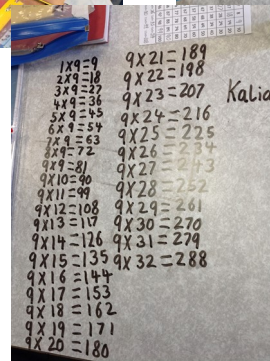 1x9=9
2x9=18
3x9=27
4x9=36
5x9=45
6x9=54
7x9=63
8x9=72
9x9=81
9x10=90
9x11=99
9x12=108
9x13=117
9x14=126
9x15=135
9x16=144
9x17=153
9x18=162
9x19=171
9x20=180
9x21=189
9x22=198
9x23=207
9x24=216
9x25=225
9x26=234
9x27=243
9x28=252
9x29=261
9x30=270
9x31=279
9x32=288
Kalia